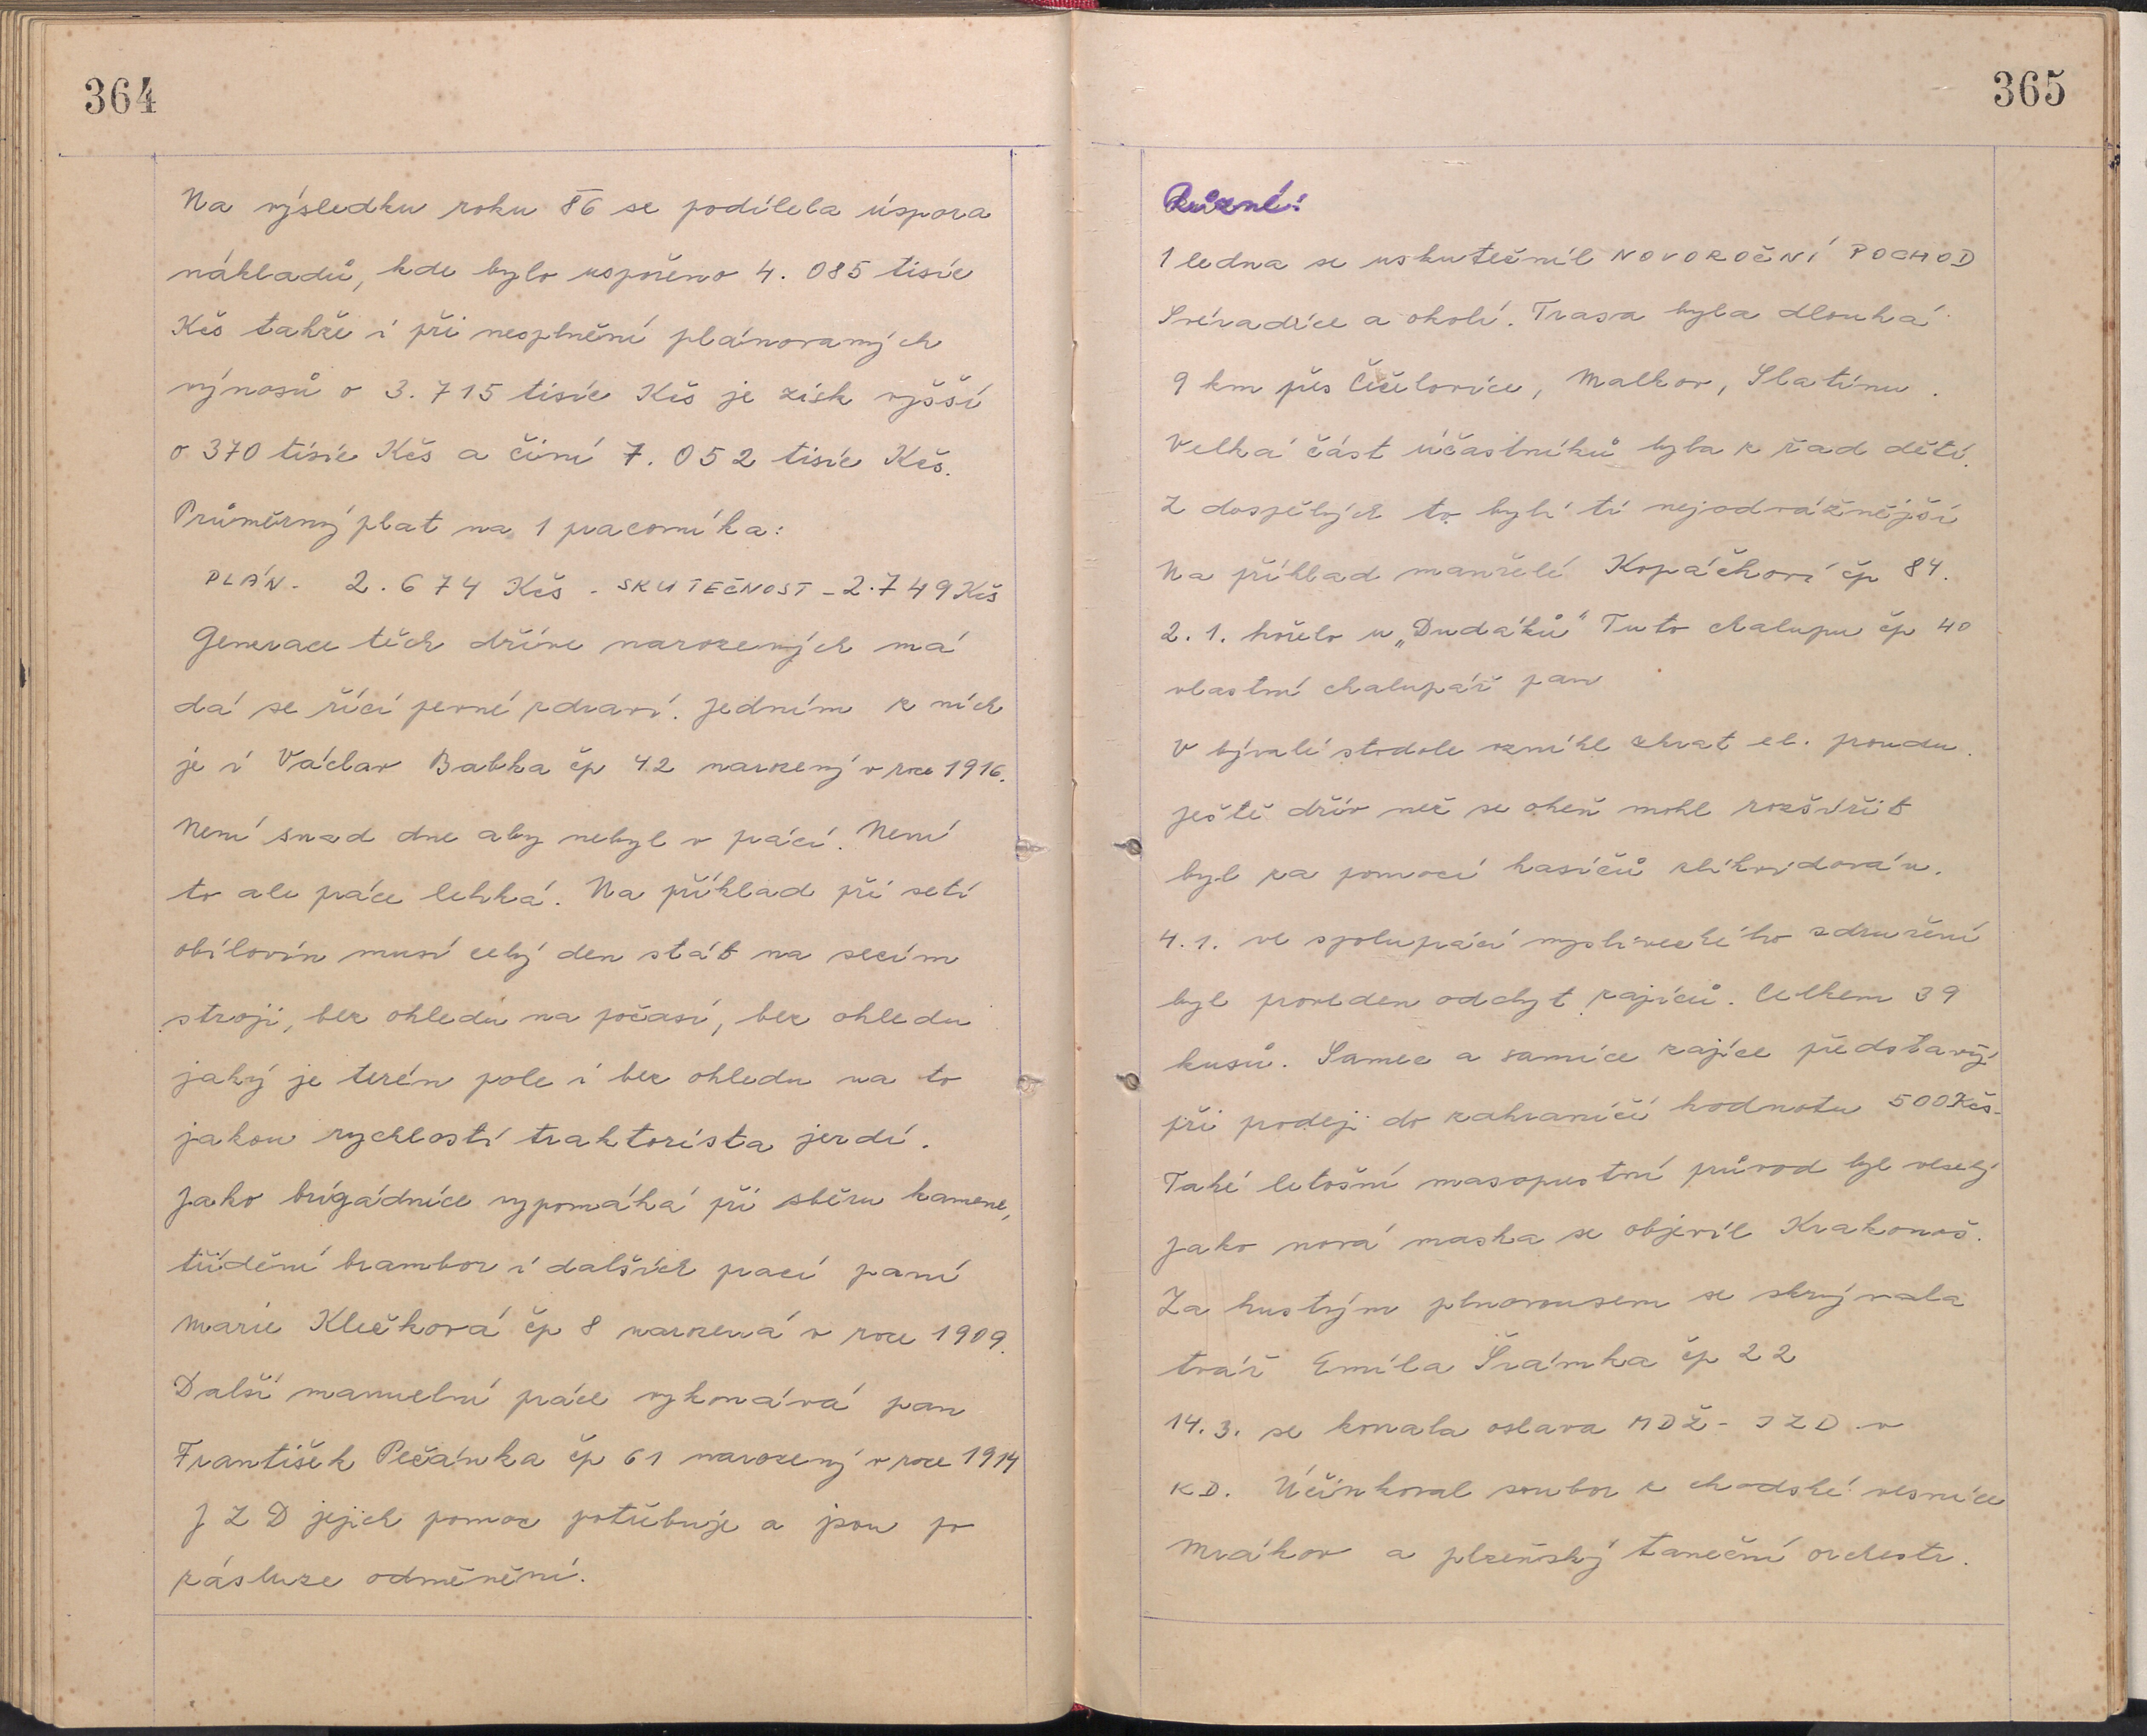 364
Na výsledku roku 86 se podílela úspora
nákladů, kde bylo uspořeno 4.085 tisíc
Kčs takže i při nesplnění plánovaných
výnosů o 3.715 tisíc Kčs je zisk vyšší
o 370 tisíc Kčs a činí 7.052 tisíc Kčs.
Průměrný plat na 1 pracovníka:
PLÁN. 2.674 Kčs - SKUTEČNOST - 2.749 Kčs
Generace těch dříve narozených má
dá se říci pevné zdraví. Jedním z nich
je i Václav Babka čp 42 narozený v roce 1916.
Není snad dne aby nebyl v práci. Není
to ale práce lehká. Na příklad při setí
obilovin musí celý den stát na secím
stroji, bez ohledu na počasí, bez ohledu
jaký je terén pole i bez ohledu na to
jakou rychlostí traktorista jezdí.
Jako brigádnice vypomáhá při sběru kamene,
třídění brambor i dalších prací paní
Marie Klečková čp 8 narozená v roce 1909.
Další manuelní práce vykonává pan
František Pečánka čp 61 narozený v roce 1914
JZD jejich pomoc potřebuje a jsou po
zásluze odměnění.
365
Různé:
1 ledna se uskutečnil NOVOROČNÍ POCHOD
Svéradice a okolí. Trasa byla dlouhá
9 km přes Čečelovice, Malkov, Slatinu.
Velká část účastníků byla z řad dětí.
Z dospělých to byli ti nejodvážnější
Na příklad manželé Kopáčkovi čp 84.
2.1. hořelo u „Dudáků“ Tuto chalupu čp 40
vlastní chalupář pan
V bývalé stodole vznikl zkrat el. proudu.
Ještě dřív než se oheň mohl rozšířit
byl za pomoci hasičů zlikvidován.
4.1. ve spolupráci mysliveckého sdružení
byl proveden odchyt zajíců. Celkem 39
kusů. Samec a samice zajíce představují
při prodeji do zahraničí hodnotu 500 Kčs-
Také letošní masopustní průvod byl veselý
Jako nová maska se objevil Krakonoš.
Za hustým plnovousem se skrývala
tvář Emila Šrámka čp 22
14.3. se konala oslava MDŽ - JZD v
KD. Účinkoval soubor z chodské vesnice
Mrákov a plzeňský taneční orchestr.